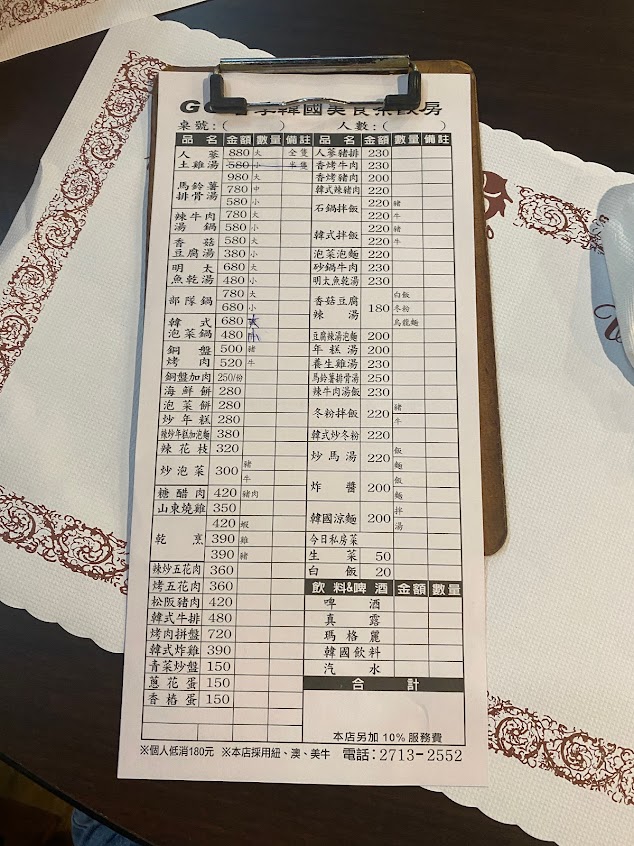 韓國美食
桌號：( ) 人數：( )
品 名 金額 數量 備註
人 蔘 土雞湯 880 大 全隻
580 小 半隻
馬鈴薯排骨湯 980 大
780 中
580 小
辣牛肉湯鍋 780 大
580 小
香菇豆腐湯 580 大
380 小
明太魚乾湯 680 大
480 小
部隊鍋 780 大
680 小
韓式泡菜鍋 680 大
480 小
銅盤烤肉 500 豬
520 牛
銅盤加肉 250/份
海鮮餅 280
泡菜餅 280
炒年糕 280
辣炒年糕加泡麵 380
辣花枝 320
炒泡菜 300 豬
牛
糖醋肉 420 豬肉
山東燒雞 350
乾烹 420 蝦
390 雞
390 豬
辣炒五花肉 360
烤五花肉 360
松阪豬肉 420
韓式牛排 480
烤肉拼盤 720
韓式炸雞 390
青菜炒盤 150
蔥花蛋 150
香樁蛋 150
品 名 金額 數量 備註
人蔘豬排 230
香烤牛肉 230
香烤豬肉 200
韓式辣豬肉 220
石鍋拌飯 220 豬
220 牛
韓式拌飯 220 豬
220 牛
泡菜泡麵 220
砂鍋牛肉 230
明太魚乾湯 230
香菇豆腐辣湯 180 白飯
冬粉
烏龍麵
豆腐辣湯泡麵 200
年糕湯 200
養生雞湯 230
馬鈴薯排骨湯 250
辣牛肉湯飯 230
冬粉拌飯 220 豬
牛
韓式炒冬粉 220
炒馬湯 220 飯
麵
炸醬 200 飯
麵
韓國涼麵 200 拌
湯
今日私房菜
生菜 50
白飯 20
飲料&啤酒 金額 數量
啤酒
真露
瑪格麗
韓國飲料
汽水
合 計
本店另加 10% 服務費
※個人低消180元 ※本店採用紐、澳、美牛 電話：2713-2552